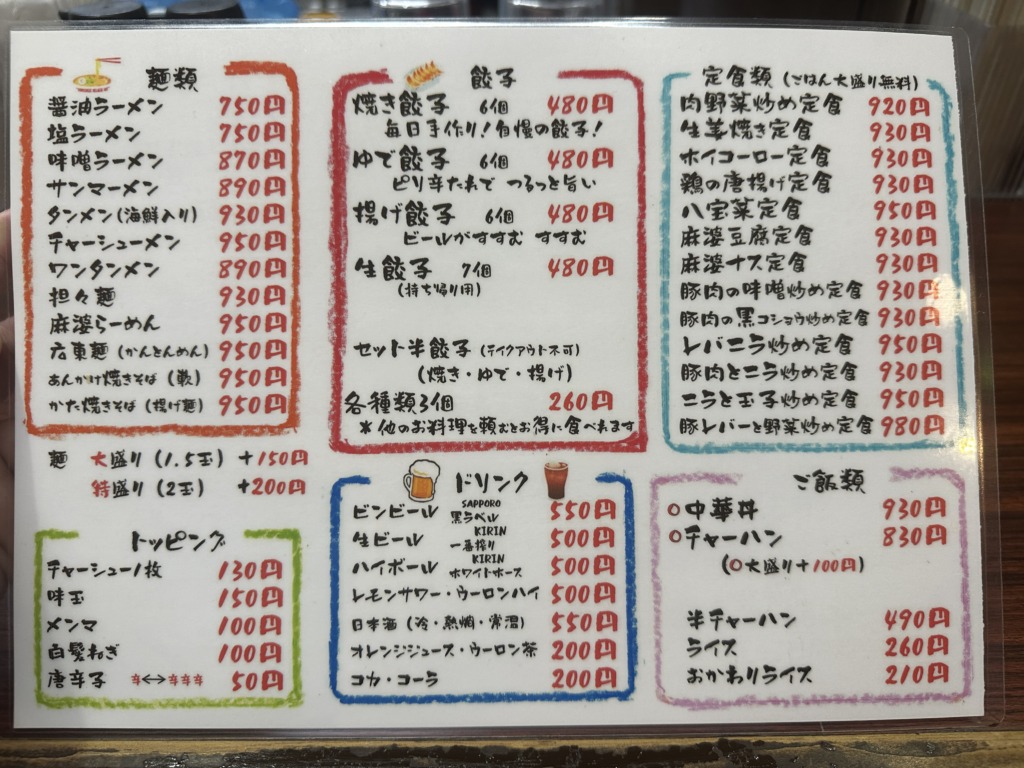 麺類
醤油ラーメン 750円
塩ラーメン 750円
味噌ラーメン 870円
サンマーメン 890円
タンメン(海鮮入り) 930円
チャーシューメン 950円
ワンタンメン 890円
担々麺 930円
麻婆らーめん 950円
広東麺(かんとんめん) 950円
あんかけ焼きそば(軟) 950円
かた焼きそば(揚げ麺) 950円
麺 大盛り(1.5玉) +150円
特盛り(2玉) +200円
トッピング
チャーシュー1枚 130円
味玉 150円
メンマ 100円
白髪ねぎ 100円
唐辛子 辛↔辛辛辛 50円
餃子
焼き餃子 6個 480円
毎日手作り!自慢の餃子!
ゆで餃子 6個 480円
ピリ辛たれで つるっと旨い
揚げ餃子 6個 480円
ビールがすすむ すすむ
生餃子 7個 480円
(持ち帰り用)
セット半餃子(テイクアウト不可)
(焼き・ゆで・揚げ)
各種類3個 260円
*他のお料理を頼むとお得に食べれます
ドリンク
ビンビール SAPPORO 黒ラベル 550円
生ビール KIRIN 一番搾り 500円
ハイボール KIRIN ホワイトホース 500円
レモンサワー・ウーロンハイ 500円
日本酒(冷・熱燗・常温) 550円
オレンジジュース・ウーロン茶 200円
コカ・コーラ 200円
定食類(ごはん大盛り無料)
肉野菜炒め定食 920円
生姜焼き定食 930円
ホイコーロー定食 930円
鶏の唐揚げ定食 930円
八宝菜定食 950円
麻婆豆腐定食 930円
麻婆ナス定食 930円
豚肉の味噌炒め定食 930円
豚肉の黒コショウ炒め定食 930円
レバニラ炒め定食 950円
豚肉とニラ炒め定食 930円
ニラと玉子炒め定食 950円
豚レバーと野菜炒め定食 980円
ご飯類
○中華丼 930円
○チャーハン 830円
(○大盛り+100円)
半チャーハン 490円
ライス 260円
おかわりライス 210円